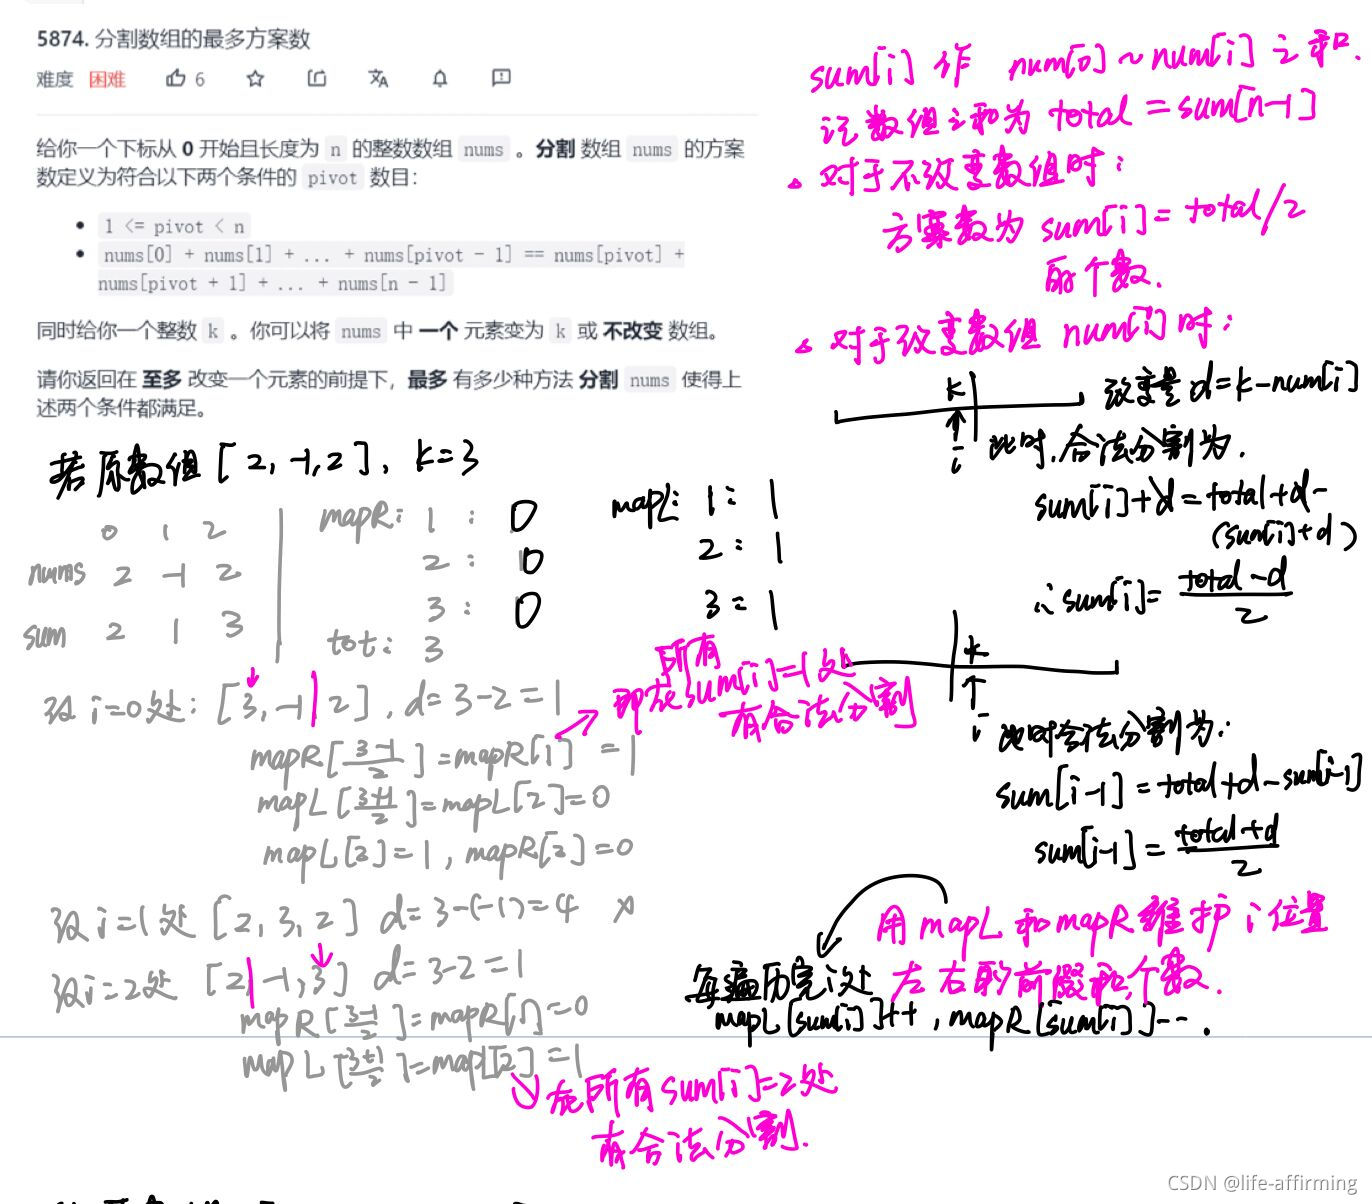 5874. 分割数组的最多方案数
难度 困难 6
给你一个下标从 0 开始且长度为 n 的整数数组 nums 。分割 数组 nums 的方案
数定义为符合以下两个条件的 pivot 数目：
• 1 <= pivot < n
• nums[0] + nums[1] + ... + nums[pivot - 1] == nums[pivot] +
nums[pivot + 1] + ... + nums[n - 1]
同时给你一个整数 k 。你可以将 nums 中 一个 元素变为 k 或 不改变 数组。
请你返回在 至多 改变一个元素的前提下，最多 有多少种方法 分割 nums 使得上
述两个条件都满足。
若原数组 [2, -1, 2], k=3
0 1 2
nums 2 -1 2
sum 2 1 3
mapR: 1 : 0
2 : 0
3 : 0
tot: 3
mapL: 1 : 1
2 : 1
3 = 1
所有
即在sum[i]=1处
有合法分割
设i=0处: [3, -1|2], d=3-2=1
mapR[(3-1)/2]=mapR[1]=1
mapL[(3+1)/2]=mapL[2]=0
mapL[2]=1, mapR[2]=0
设i=1处 [2, 3, 2] d=3-(-1)=4 ×
设i=2处 [2|-1, 3] d=3-2=1
mapR[(3-1)/2]=mapR[1]=0
mapL[(3+1)/2]=map[2]=1
在所有sum[i]=2处
有合法分割.
sum[i] 作 num[0]~num[i] 之和.
记数组之和为 total = sum[n-1]
对于不改变数组时:
方案数为 sum[i]= total/2
的个数.
对于改变数组 num[i]时:
k
i
改变量 d=k-num[i]
此时,合法分割为.
sum[i]+d=total+d-
(sum[i]+d)
∴sum[i]= (total-d)/2
k
i
此时合法分割为:
sum[i-1]=total+d-sum[i-1]
sum[i-1]= (total+d)/2
用mapL和mapR维护i位置
左右的前缀和个数.
每遍历完i处
mapL[sum[i]]++, mapR[sum[i]]--.
CSDN @life-affirming